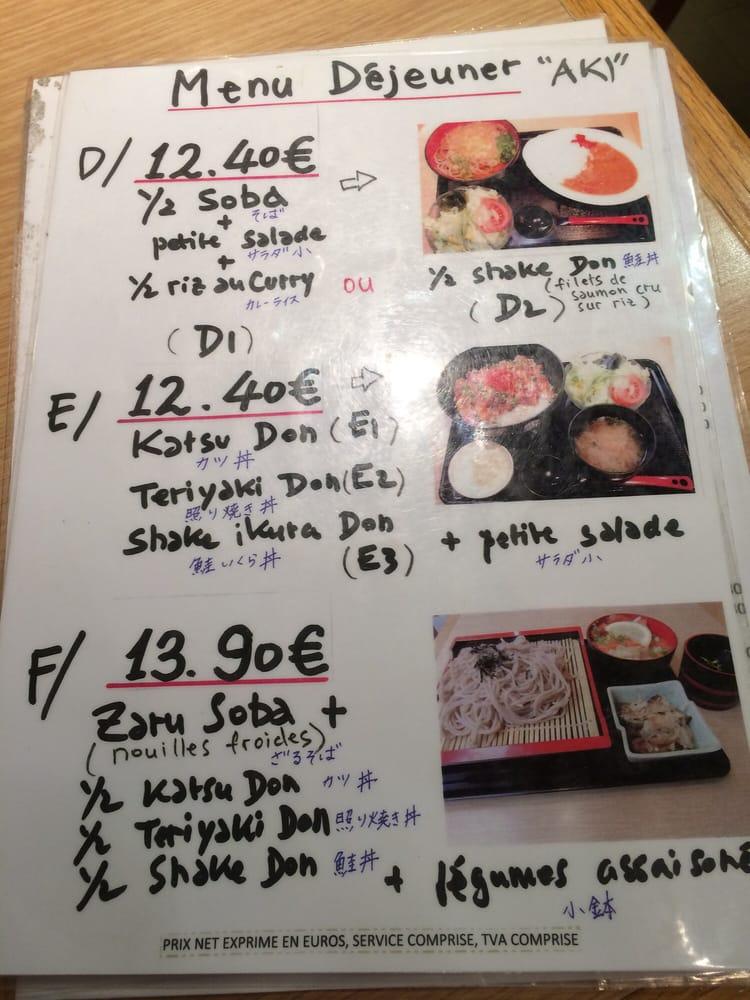 Menu Déjeuner "AKI"
D/ 12.40€ ⇨
1/2 Soba
そば
+
petite salade
サラダ小
+
1/2 riz au Curry
カレーライス
(D1)
ou
1/2 shake Don 鮭丼
(filets de
saumon cru
sur riz)
(D2)
E/ 12.40€ ⇨
Katsu Don (E1)
カツ丼
Teriyaki Don (E2)
照り焼き丼
Shake ikura Don
鮭いくら丼
(E3)
+ petite salade
サラダ小
F/ 13.90€
Zaru Soba +
(nouilles froides)
ざるそば
1/2 Katsu Don カツ丼
1/2 Teriyaki Don 照り焼き丼
1/2 Shake Don 鮭丼
+ légumes assaisoné
小鉢
PRIX NET EXPRIME EN EUROS, SERVICE COMPRISE, TVA COMPRISE